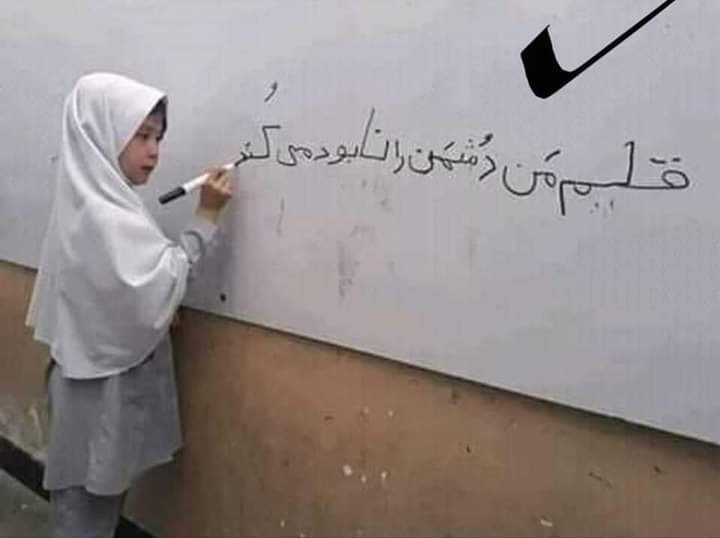 قلیم مَن دُشمَن را نابود می کُند